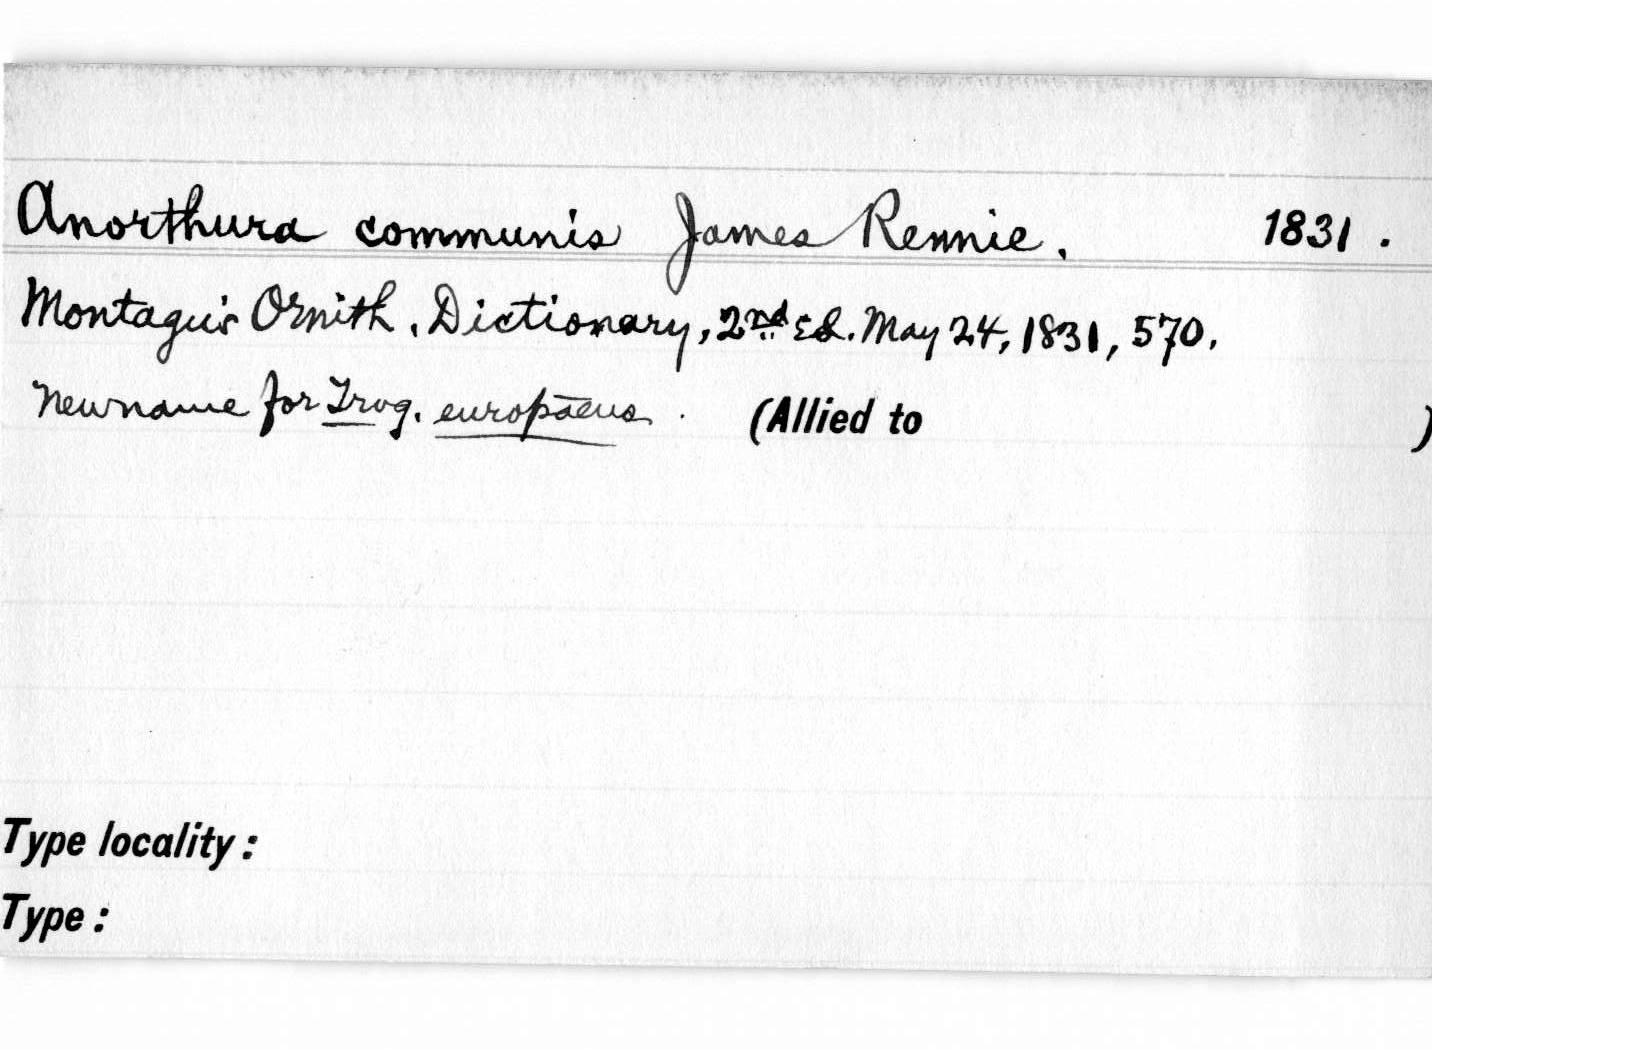 Anorthura communis James Rennie. 1831.
Montagu's Ornith. Dictionary, 2nd Ed. May 24, 1831, 570.
New name for Trog. europaeus. (Allied to )
Type locality:
Type: